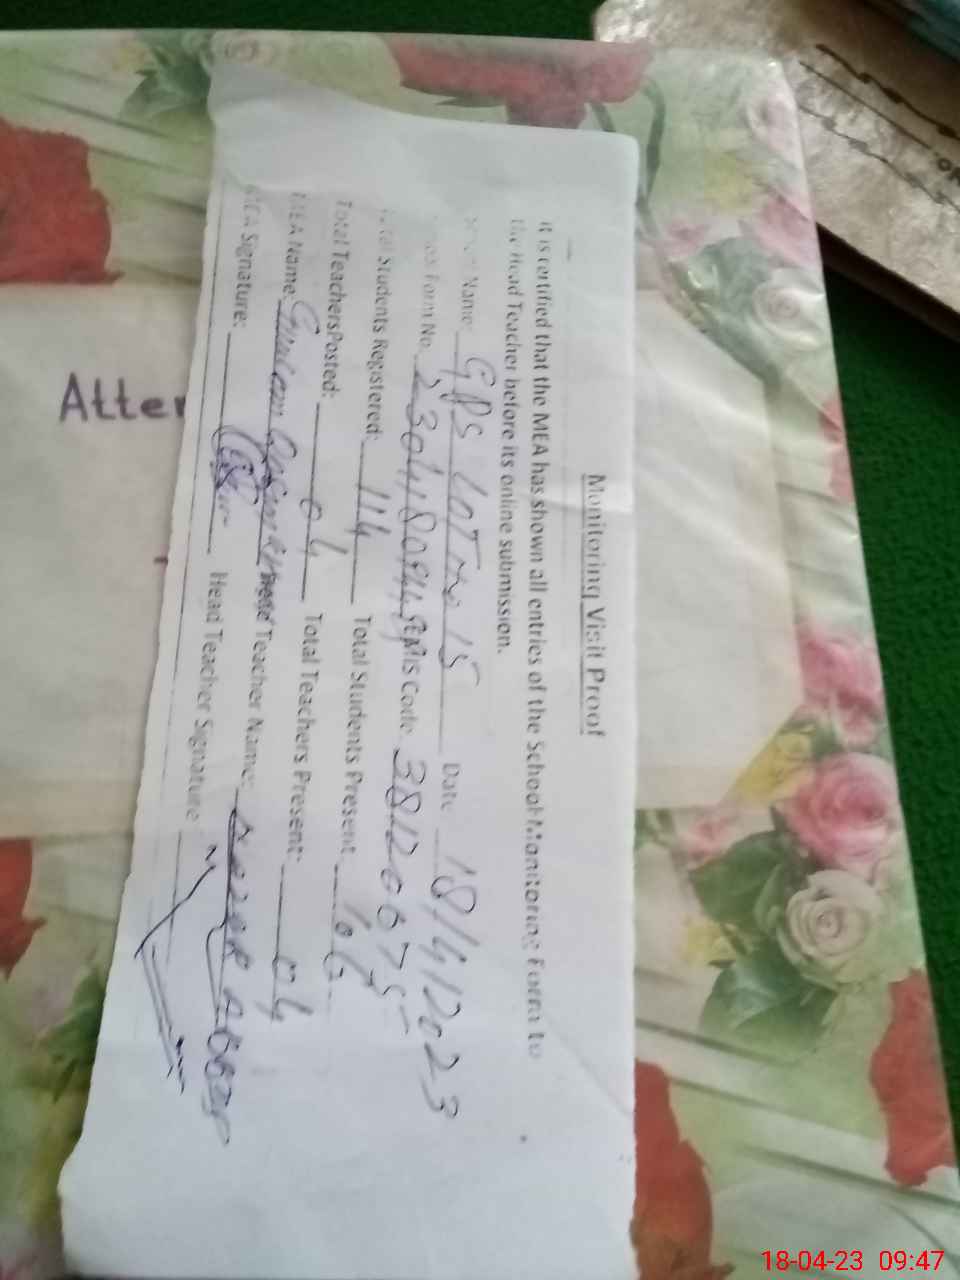 Monitoring Visit Proof
It is certified that the MEA has shown all entries of the School Monitoring Form to
the Head Teacher before its online submission.
Name: GPS Date 18/4/2023
Form No. EMIS Code 38120675
Total Students Registered: 114 Total Students Present 106
Total Teachers Posted: 04 Total Teachers Present: 04
MEA Name: Head Teacher Name:
MEA Signature: Head Teacher Signature
Atter
18-04-23 09:47